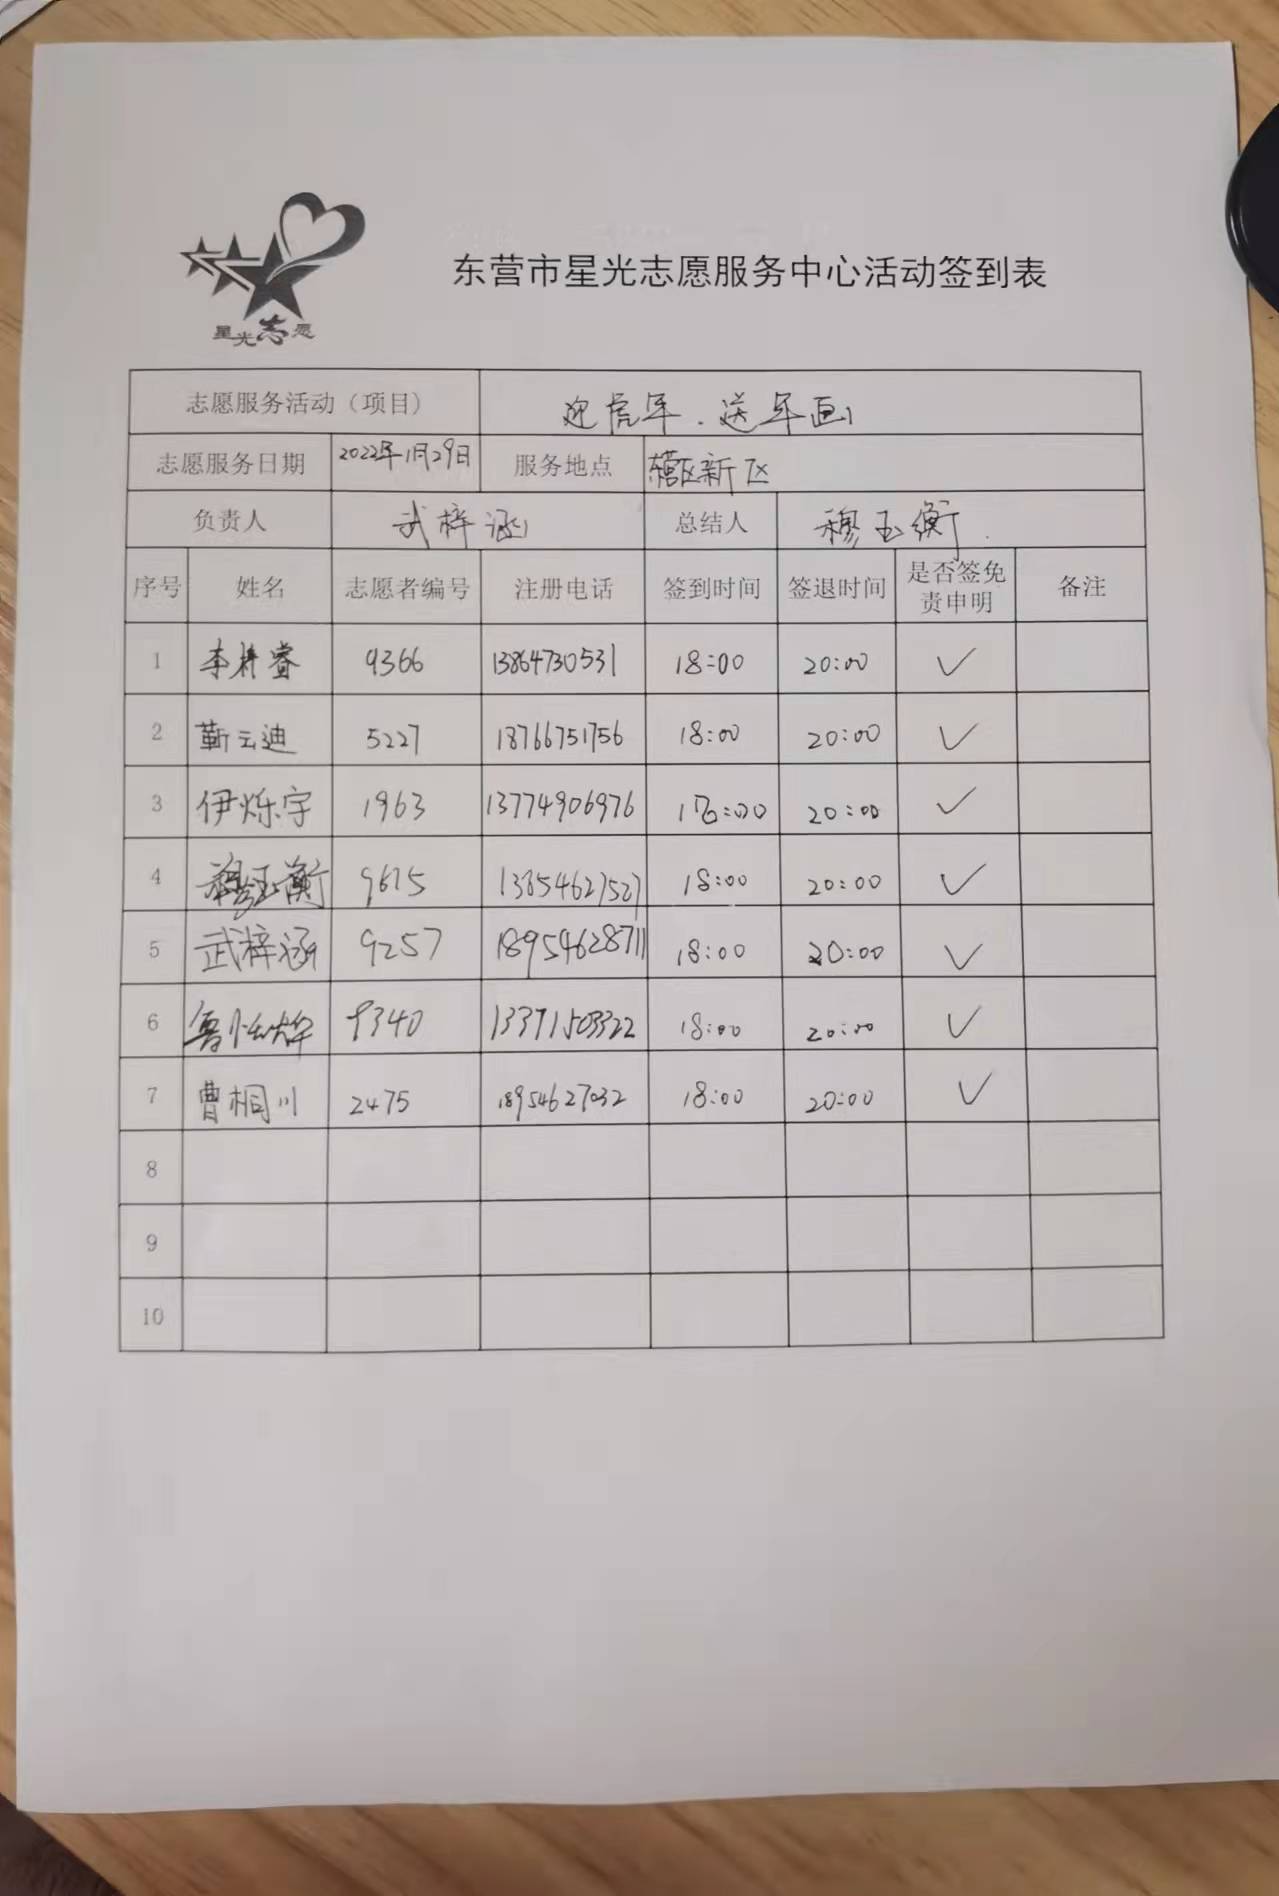 星光志愿
东营市星光志愿服务中心活动签到表
志愿服务活动（项目） 迎虎年.送年画
志愿服务日期 2022年1月29日 服务地点 辖区新区
负责人 武梓涵 总结人 穆玉衡
序号 姓名 志愿者编号 注册电话 签到时间 签退时间 是否签免责申明 备注
1 李梓睿 9366 13864730531 18:00 20:00 ✓
2 靳云迪 5227 18766751756 18:00 20:00 ✓
3 伊烁宇 1963 13774906976 20:00 ✓
4 穆玉衡 9615 13854627527 18:00 20:00 ✓
5 武梓涵 9257 18954628711 18:00 20:00 ✓
6 鲁 9340 13371503322 18:00 20:00 ✓
7 曹桐川 2475 18954627032 18:00 20:00 ✓
8
9
10